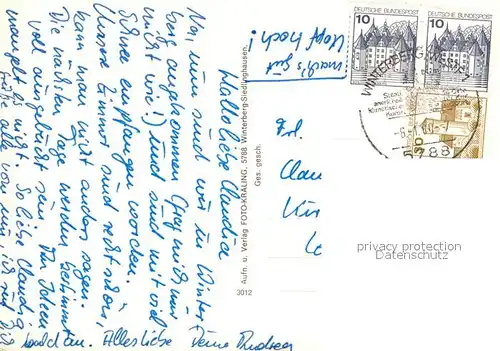 Hallo liebe Claudia
Na, nun sind wir in Winter-
berg angekommen (frag mich nur
nicht wie!) und sind mit viel
Schnee empfangen worden.
Unsere Zimmer sind recht schön,
kann man nicht anders sagen.
Die nächsten Tage werden bestimmt
voll ausgebucht sein. An Ideen
mangelt's nicht. So liebe Claudia
Grüße alle von mir, ich ruf Dich
bald an. Alles liebe Deine Andrea
mach's gut
Kopf hoch!
Aufn. u. Verlag FOTO-KRÄLING, 5788 Winterberg-Siedlinghausen,
Ges. gesch.
3012
DEUTSCHE BUNDESPOST
10
DEUTSCHE BUNDESPOST
10
30
WINTERBERG
788
Frl.
Clau
privacy protection
Veronikas